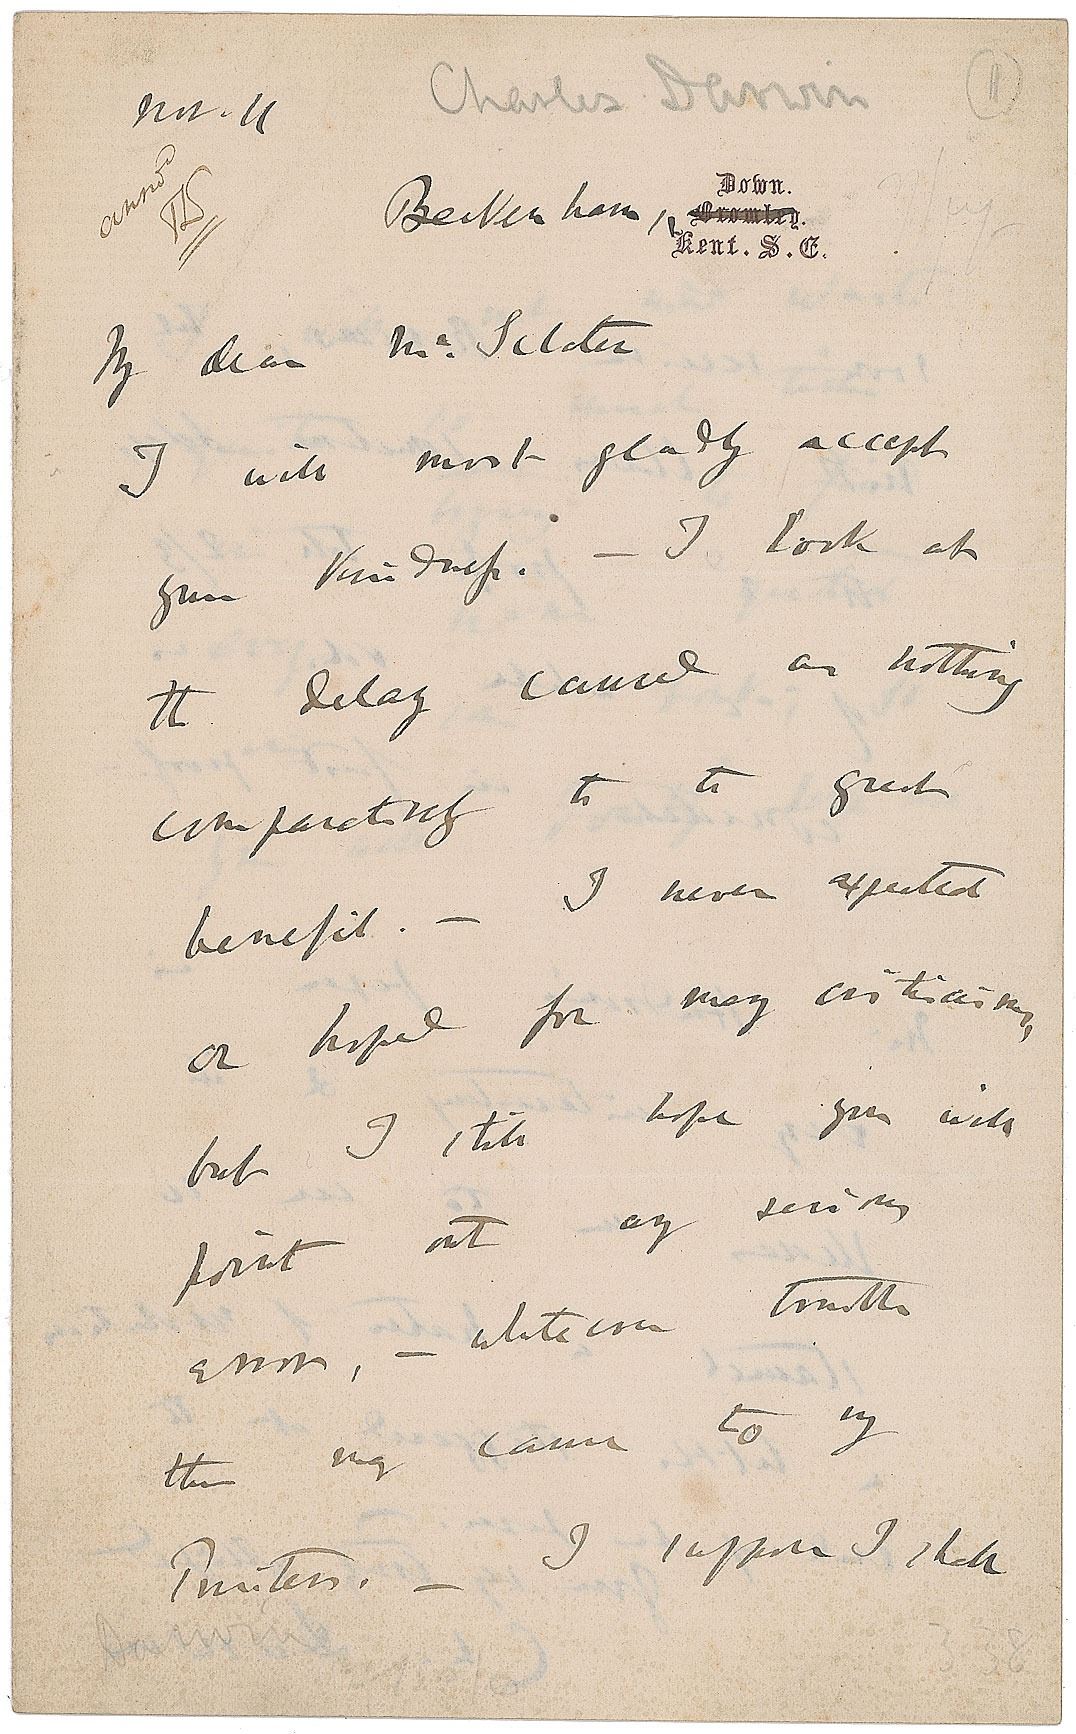 Charles Darwin
11
Nov. 11
Down.
Beckenham, Bromley.
Kent. S. E.
My dear Mr. Sclater
I will most gladly accept
your kindness. — I look at
the delay caused as nothing
comparatively to the great
benefit. — I never expected
or hoped for many criticisms,
but I still hope you will
point out any serious
errors, — whatever trouble
this may cause to my
Printers. — I suppose I shall
Darwin